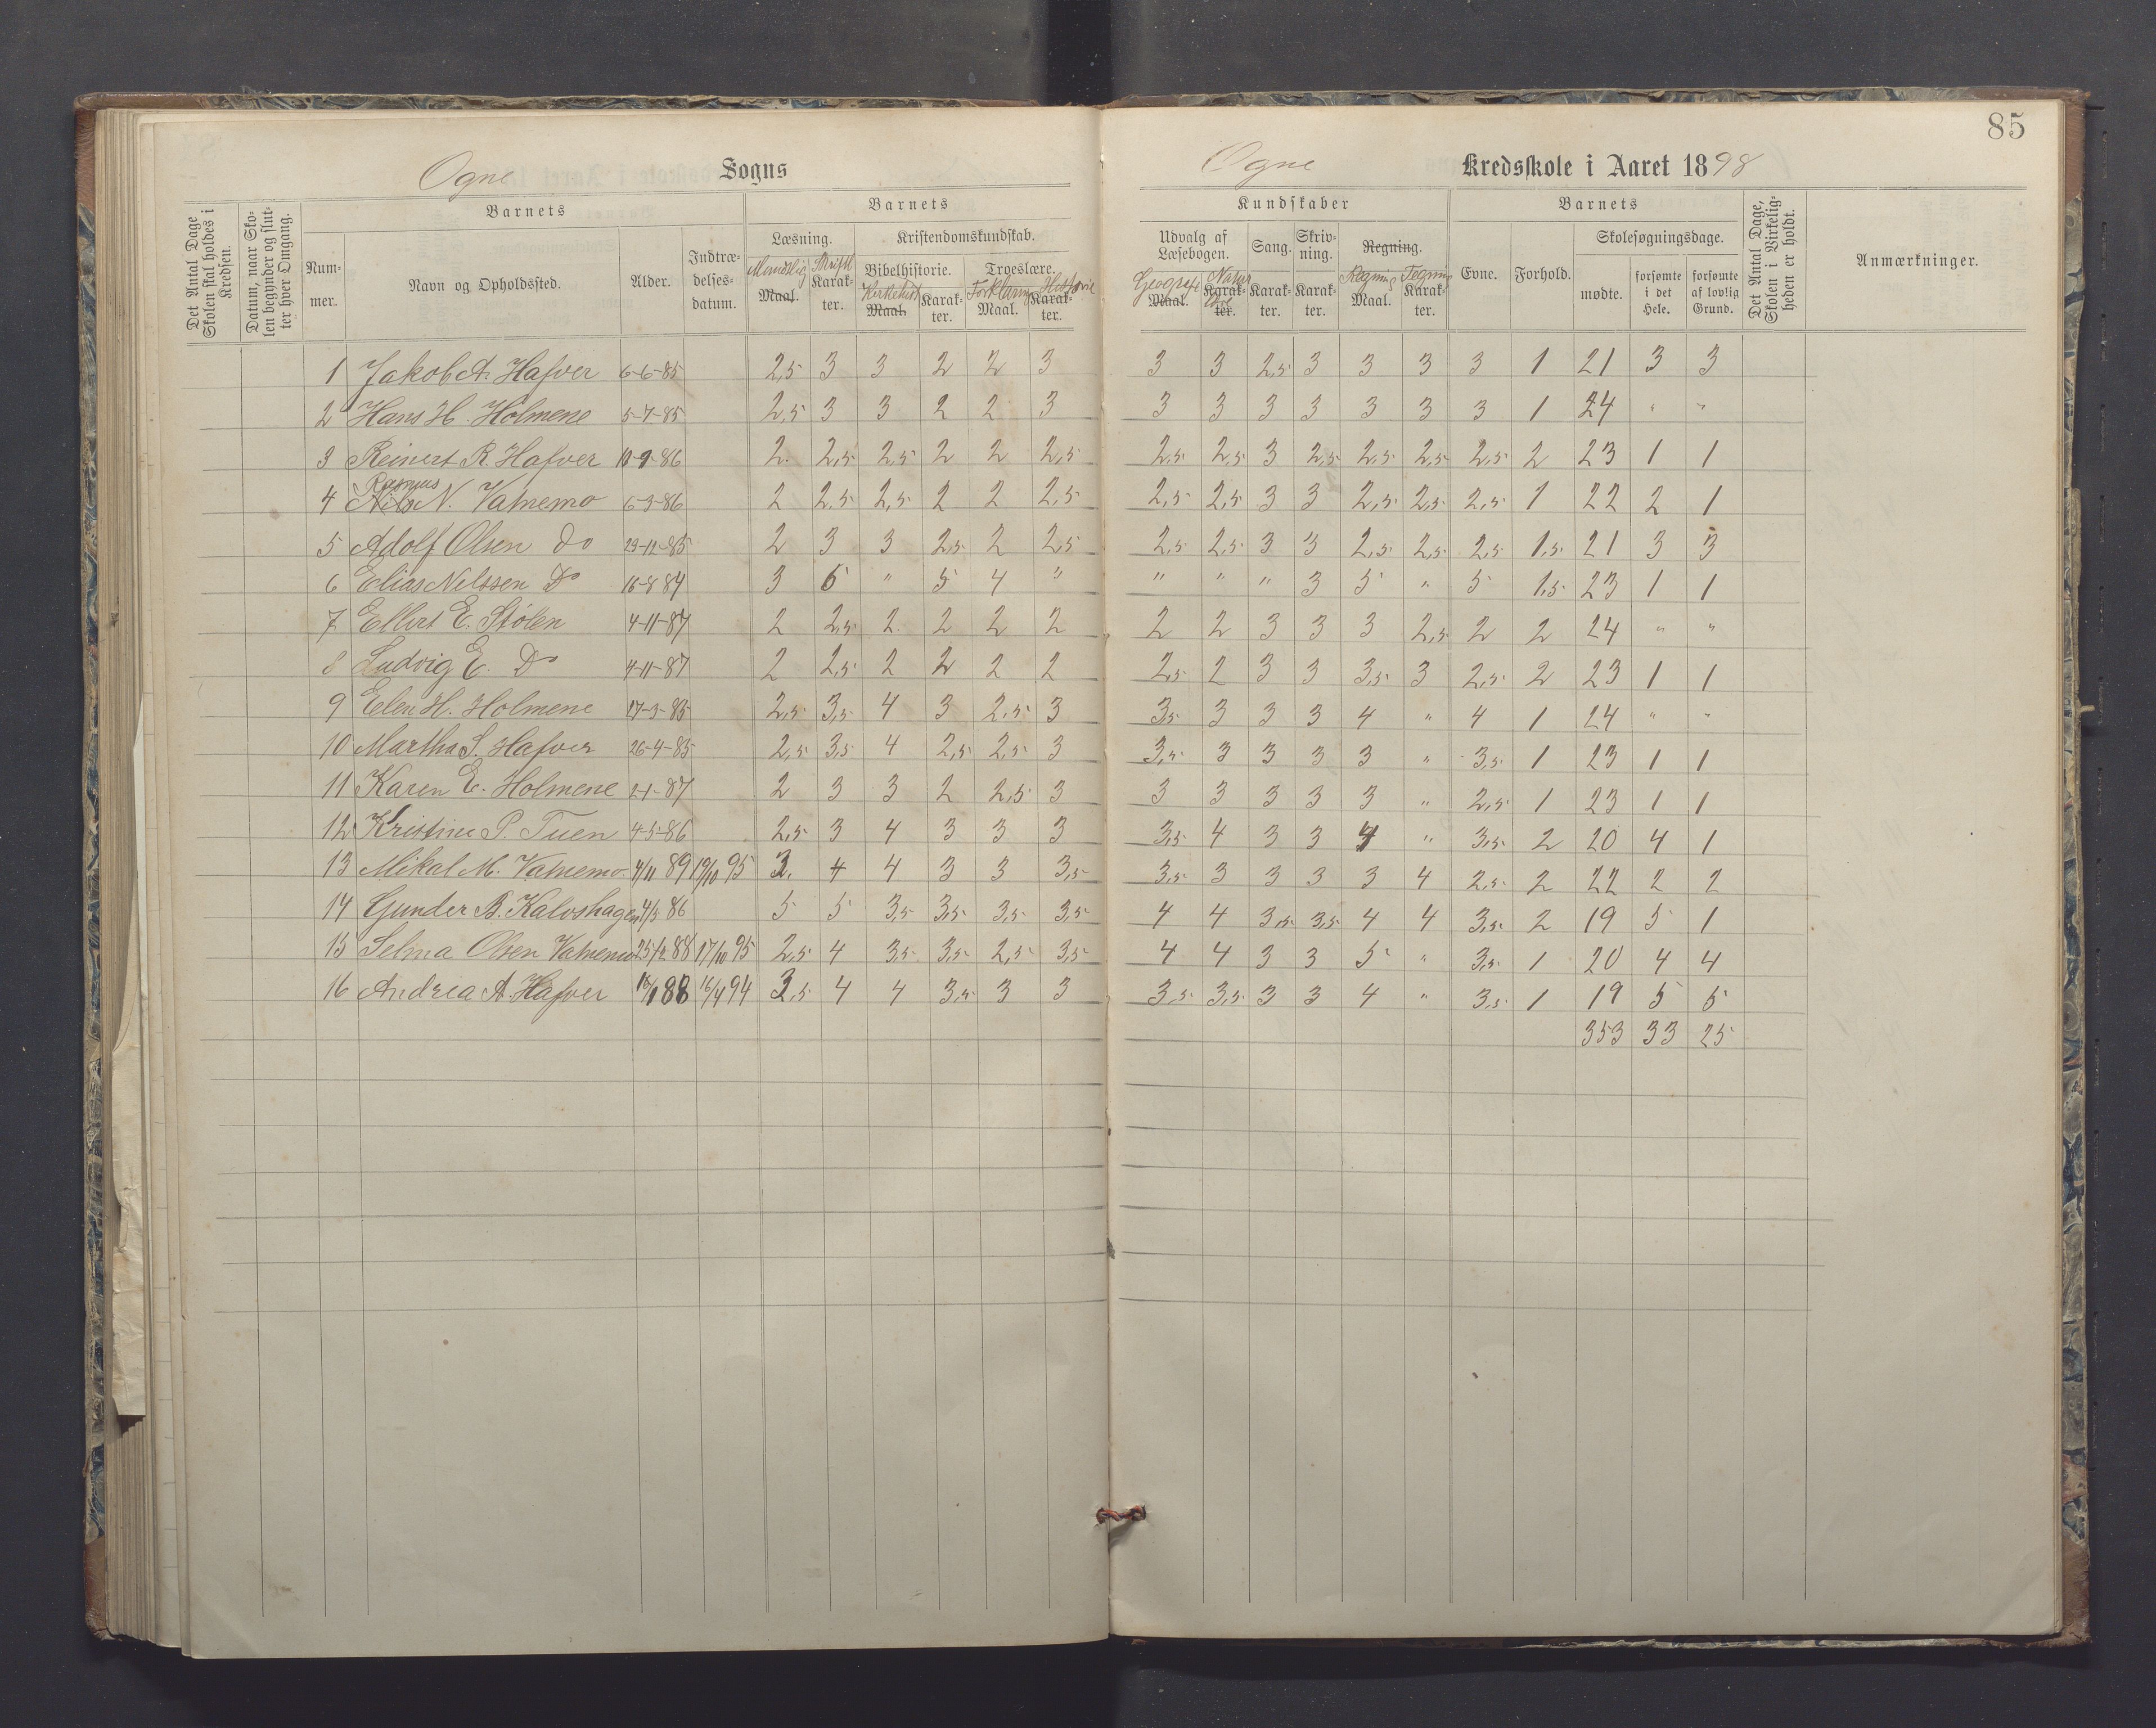 85
Ogne Sogns Ogne Kredsskole i Aaret 1898
Det Antal Dage Skolen skal holdes i Kredsen.
Datum, naar Skolen begynder og slutter hver Omgang.
Barnets
Nummer.
Navn og Opholdssted.
Alder.
Indtrædelsesdatum.
Barnets
Læsning.
Mundtlig Maal.
Skriftl Karakter.
Kristendomskundskab.
Bibelhistorie.
Kirkehist Maal.
Karakter.
Troeslære.
Forklaring Maal.
Historie Karakter.
Kundskaber
Udvalg af Læsebogen.
Geografi Maal.
Natur Karakter.
Sang. Karakter.
Skrivning. Karakter.
Regning.
Regning Maal.
Tegning Karakter.
Barnets
Evne.
Forhold.
Skolesøgningsdage.
mødte.
forsømte i det Hele.
forsømte af lovlig Grund.
Det Antal Dage, Skolen i Virkeligheden er holdt.
Anmærkninger.
1 Jakob A. Hafver 6-6-85 2,5 3 3 2 2 3 3 3 2,5 3 3 3 3 1 21 3 3
2 Hans H. Holmene 5-7-85 2,5 3 3 2 2 3 3 3 3 3 3 3 3 1 24 " "
3 Reinert R. Hafver 10-9-86 2. 2,5 2,5 2 2 2,5 2,5 2,5 3 2,5 2,5 2,5 2,5 2 23 1 1
Rasmus
4 Nils N. Vatnemo 6-3-86 2 2,5 2,5 2 2 2,5 2,5 2,5 3 3 2,5 2,5 2,5 1 22 2 1
5 Adolf Olsen do 29-12-85 2 3 3 2,5 2 2,5 2,5 2,5 3 3 2,5 2,5 2,5 1,5 21 3 3
6 Elias Nilssen Do 16-8 84 3 6 " 5 4 " " " " 3 5 " 5 1,5 23 1 1
7 Ellert E. Stølen 4-11-87 2 2,5 2. 2 2 2 2 2 3 3 3 2,5 2 2 24 " "
8 Ludvig E. Do 4-11-87 2 2,5 2 2 2 2 2,5 2 3 3 3,5 3 2,5 2 23 1 1
9 Elen H. Holmene 17-3-85 2,5 3,5 4 3 2,5 3 3,5 3 3 3 4 " 4 1 24 " "
10 Martha S. Hafver 26-4-85 2,5 3,5 4 2,5 2,5 3 3,5 3 3 3 3 " 3,5 1 23 1 1
11 Karen E. Holmene 2-1-87 2 3 3 2 2,5 3 3 3 3 3 3 " 2,5 1 23 1 1
12 Kristine P. Tuen 4-5-86 2,5 3 4 3 3 3 3,5 4 3 3 4 " 3,5 2 20 4 1
13 Mikal M. Vatnemo 4/11 89 19/10 95 3. 4 4 3 3 3,5 3,5 3 3 3 3 4 2,5 2 22 2 2
14 Gunder B. Kalvshagen 4/5 86 5 5 3,5 3,5 3,5 3,5 4 4 3,5 3,5 4 4 3,5 2 19 5 1
15 Selma Olsen Vatnemo 25/12 88 17/10 95 2,5 4 3,5 3,5 2,5 3,5 4 4 3 3 5 " 3,5 1 20 4 4
16 Andrea A. Hafver 18/1 88 16/4 94 3,5 4 4 3,5 3 3 3,5 3,5 3 3 4 " 3,5 1 19 5 5
353 33 25